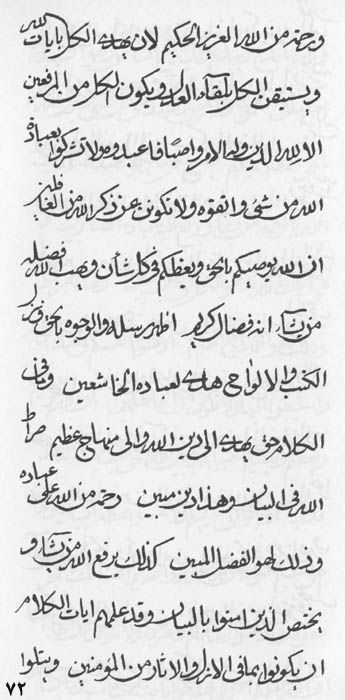 ورحمة من الله العزيز الحكيم لان يهدى الكل بايات الله
ويستيقن الكل بلقاء العدل ويكون الكل من
الا لله الدين وله الامر واصبا فاعبدوه ولا تشركوا بعبادة
الله من شئ واتقوه ولا تكونن عن ذكر الله من الغافلين
ان الله يوصيكم بالحق ويعظكم فى كل شأن ويهب الله فضله
من يشاء انه فضال كريم اظهر رسله والوجوه بالحق ونزل
الكتب والالواح هدى لعباده الخاشعين وما فى
الكلام حق يهدى الى دين الله والى منهاج عظيم صراط
الله فى البيان وهذا دين مبين رحمة من الله على عباده
وذلك لهو الفضل المبين كذلك يرفع الله من يشاء و
يختص الذين امنوا بالبيان وقد علمهم ايات الكلام
ان يكونوا بما فى الانزل والاثار من المؤمنين ويتلوا
٧٢